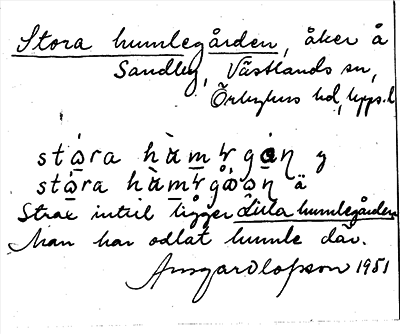 Stora humlegården, åker å
Sandby, Västlands sn,
Örbyhus hd, Upps. l
stωra hὰm̲ɫgaŋ y
stωra hὰm̲ɫgω̊ωŋ ä
Strax intill ligger Lilla humlegården
Man har odlat humle där.
Ansgar Olofsson 1951